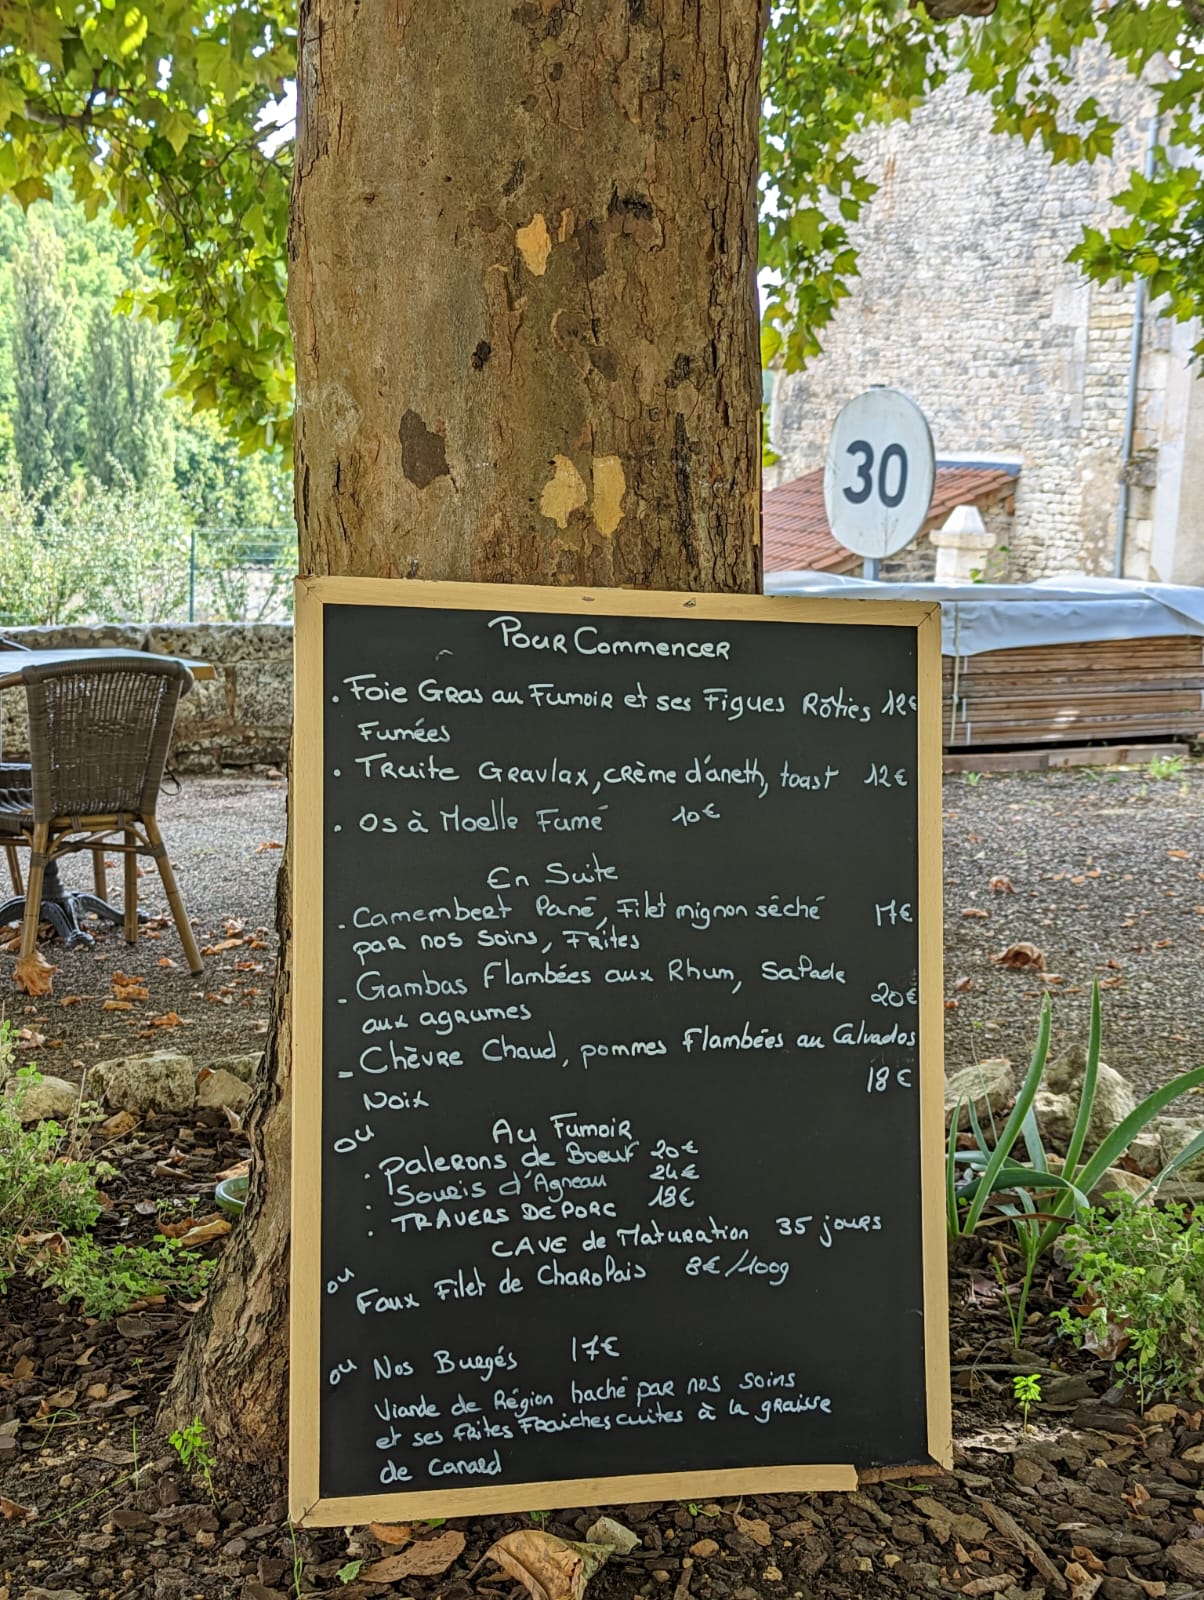 30
Pour Commencer
. Foie Gras au Fumoir et ses Figues Rôties 12€
Fumées
. Truite Gravlax, crème d'aneth, toast 12€
. Os à Moelle Fumé 10€
En Suite
- Camembert Pané, Filet mignon sêché 17€
par nos soins, Frites
- Gambas Flambées aux Rhum, Salade
aux agrumes 20€
- Chèvre Chaud, pommes Flambées au Calvados
Noix 18€
ou Au Fumoir
. Palerons de Boeuf 20€
. Souris d'Agneau 24€
. TRAVERS DE PORC 18€
CAVE de Maturation 35 jours
ou Faux Filet de Charolais 8€/100g
ou Nos Burgés 17€
Viande de Région haché par nos soins
et ses frites Fraiches cuites à la graisse
de canard